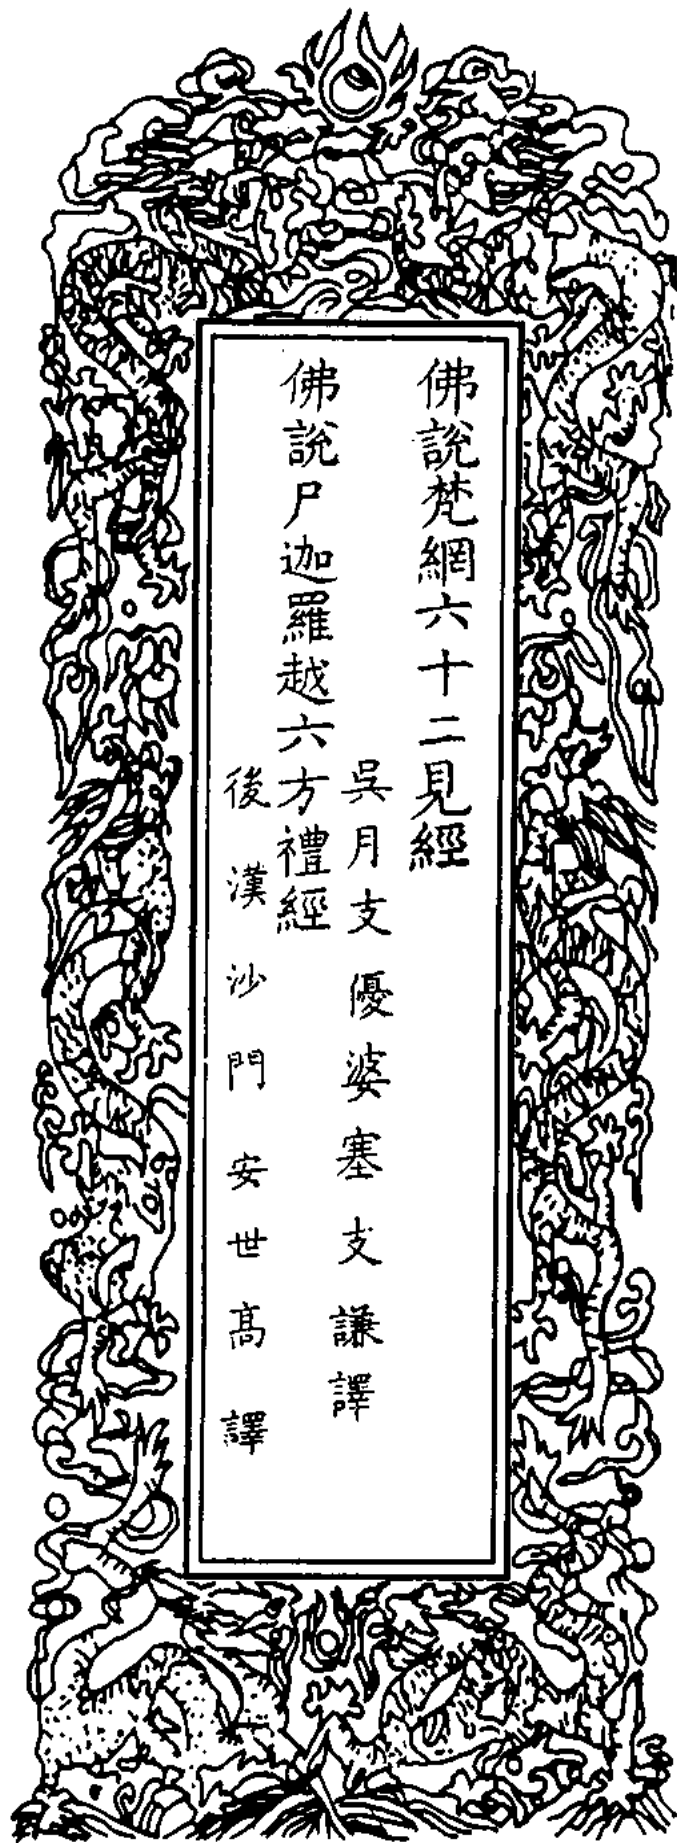 佛說梵網六十二見經
吳月支優婆塞支謙譯
佛說尸迦羅越六方禮經
後漢沙門安世高譯